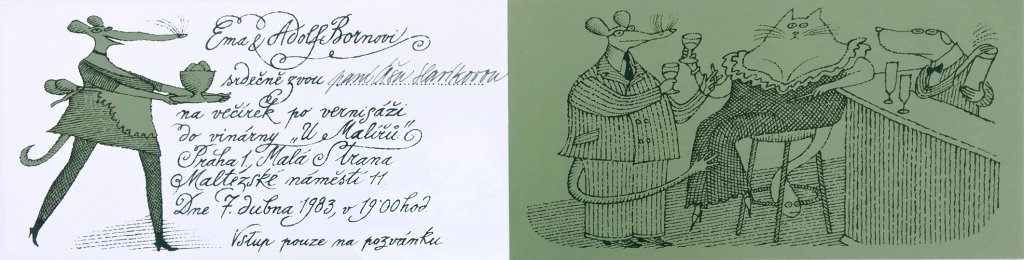 Ema & Adolf Bornovi
srdečně zvou paní
na večírek po vernisáži
do vinárny „U Malířů"
Praha 1, Malá Strana
Maltézské náměstí 11.
Dne 7. dubna 1983, v 19:00 hod.
Vstup pouze na pozvánku